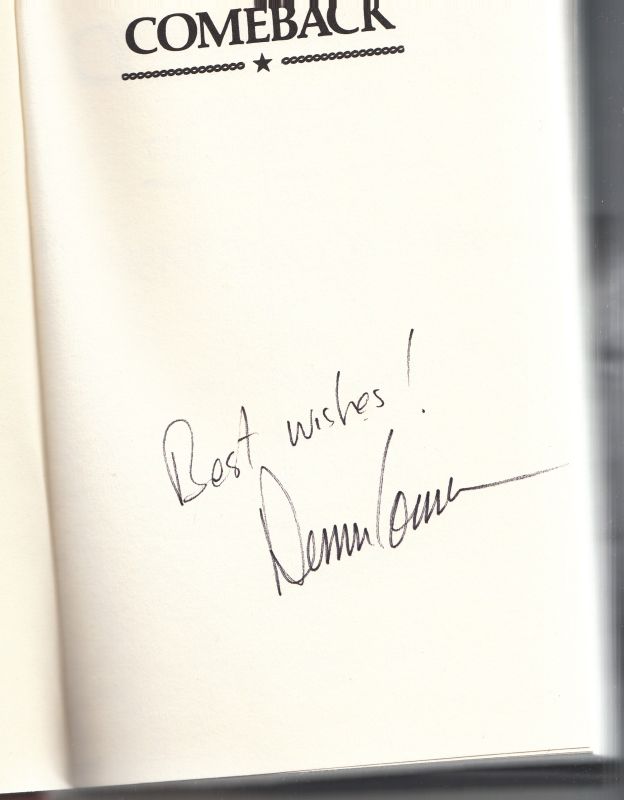 COMEBACK
Best wishes!
Dennis Conner